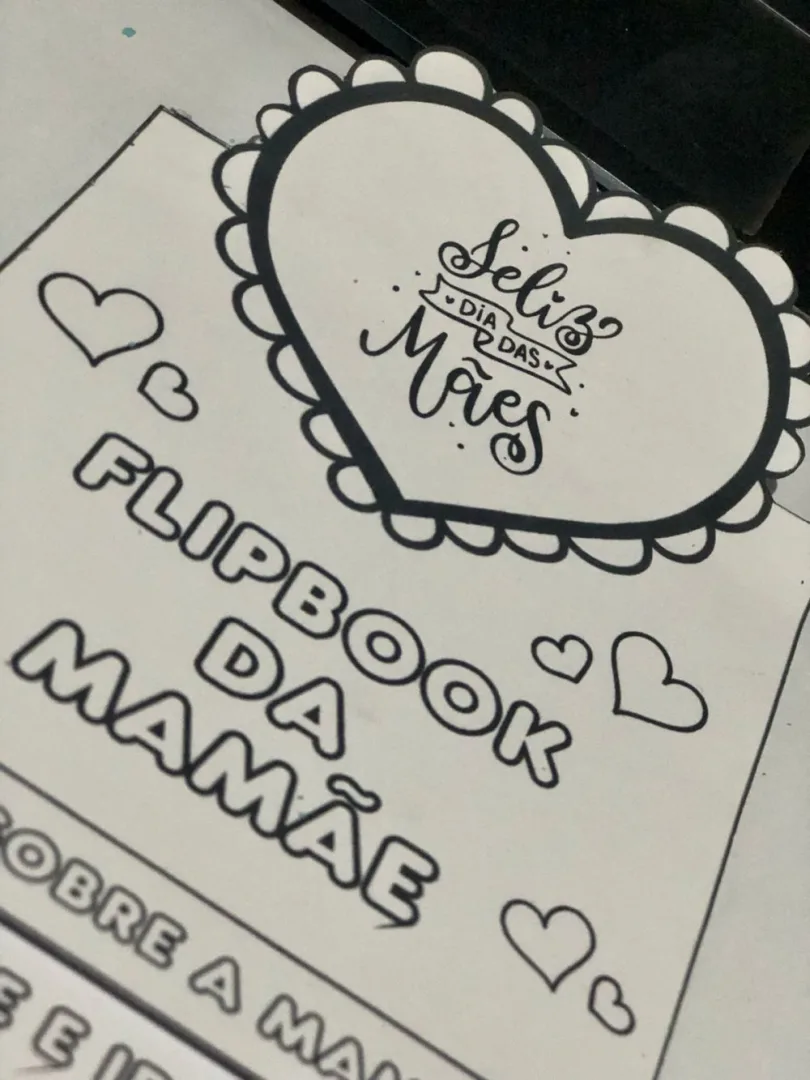 Feliz
DIA
DAS
Mães
FLIPBOOK
DA
MAMÃE
SOBRE A
E E